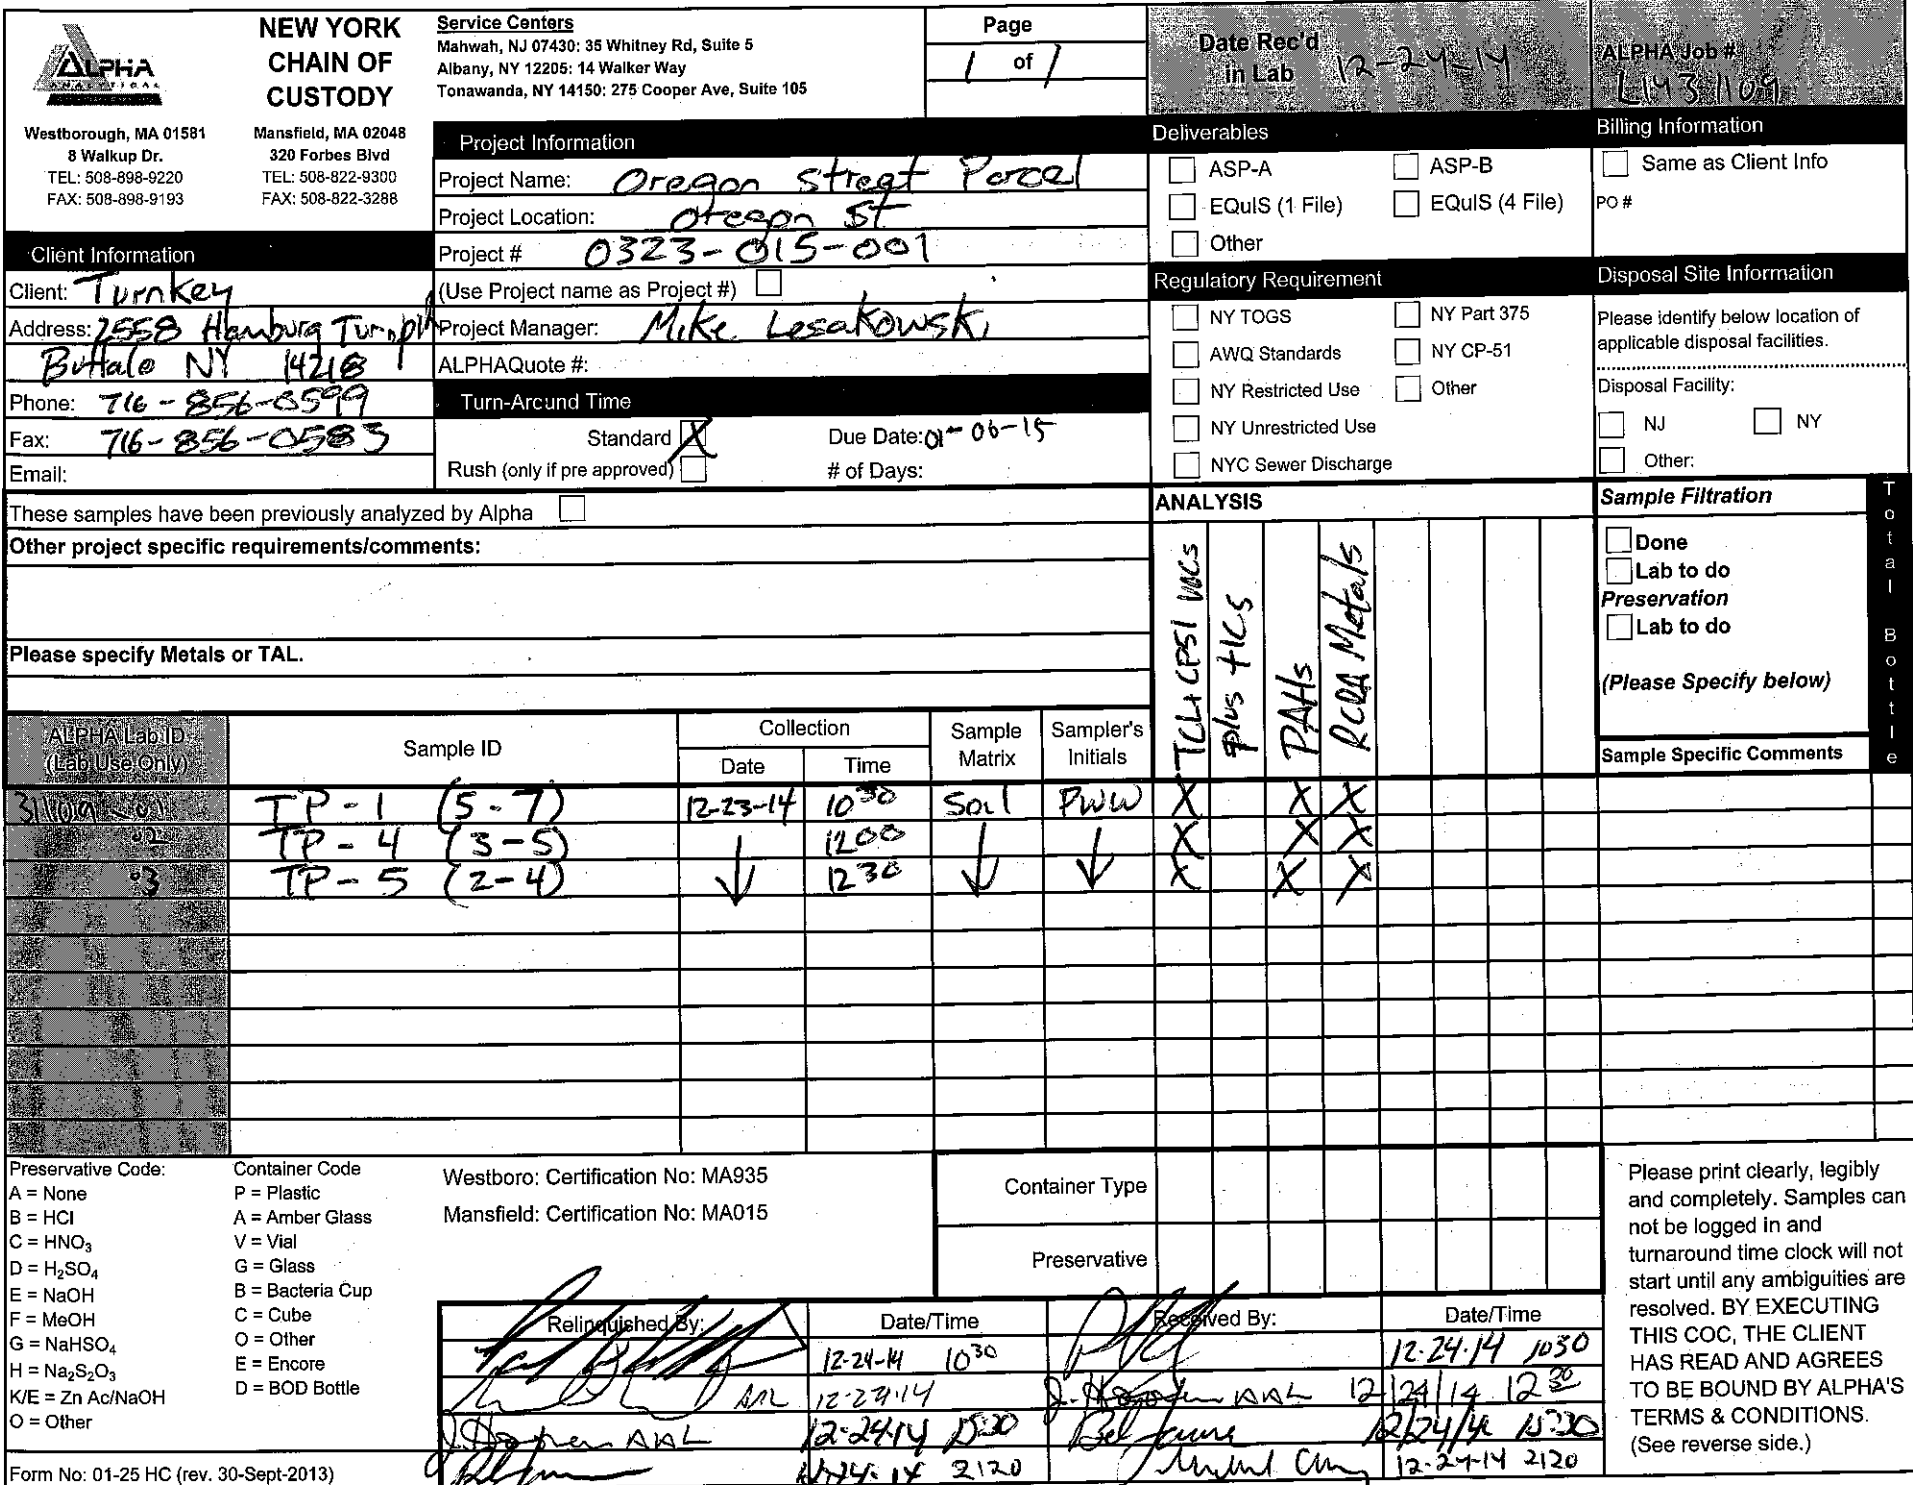 ALPHA
ANALYTICAL
Westborough, MA 01581
8 Walkup Dr.
TEL: 508-898-9220
FAX: 508-898-9193
NEW YORK
CHAIN OF
CUSTODY
Mansfield, MA 02048
320 Forbes Blvd
TEL: 508-822-9300
FAX: 508-822-3288
Service Centers
Mahwah, NJ 07430: 35 Whitney Rd, Suite 5
Albany, NY 12205: 14 Walker Way
Tonawanda, NY 14150: 275 Cooper Ave, Suite 105
Page
1 of 1
Date Rec'd
in Lab 12-24-14
ALPHA Job #
L1431109
Client Information
Client: Turnkey
Address: 2558 Hamburg Turnpk
Buffalo NY 14218
Phone: 716-856-0599
Fax: 716-856-0583
Email:
Project Information
Project Name: Oregon Street Parcel
Project Location: Oregon St
Project # 0323-015-001
(Use Project name as Project #)
Project Manager: Mike Lesakowski
ALPHAQuote #:
Turn-Around Time
Standard X Due Date: 01-06-15
Rush (only if pre approved) # of Days:
Deliverables
ASP-A ASP-B
EQuIS (1 File) EQuIS (4 File)
Other
Regulatory Requirement
NY TOGS NY Part 375
AWQ Standards NY CP-51
NY Restricted Use Other
NY Unrestricted Use
NYC Sewer Discharge
Billing Information
Same as Client Info
PO #
Disposal Site Information
Please identify below location of
applicable disposal facilities.
Disposal Facility:
NJ NY
Other:
These samples have been previously analyzed by Alpha
Other project specific requirements/comments:
Please specify Metals or TAL.
ANALYSIS
TCL+CP51 VOCs
plus TICs
PAHs
RCRA Metals
Sample Filtration
Done
Lab to do
Preservation
Lab to do
(Please Specify below)
Total Bottle
ALPHA Lab ID
(Lab Use Only)
Sample ID
Collection
Date Time
Sample
Matrix
Sampler's
Initials
Sample Specific Comments
31109-01 TP-1 (5-7) 12-23-14 1030 Soil PWW X X X
02 TP-4 (3-5) 1200 X X X
03 TP-5 (2-4) 1230 X X X
Preservative Code:
A = None
B = HCl
C = HNO3
D = H2SO4
E = NaOH
F = MeOH
G = NaHSO4
H = Na2S2O3
K/E = Zn Ac/NaOH
O = Other
Container Code
P = Plastic
A = Amber Glass
V = Vial
G = Glass
B = Bacteria Cup
C = Cube
O = Other
E = Encore
D = BOD Bottle
Westboro: Certification No: MA935
Mansfield: Certification No: MA015
Container Type
Preservative
Relinquished By: Date/Time Received By: Date/Time
12-24-14 1030 12-24-14 1030
AAL 12-24-14 AAL 12/24/14 1230
AAL 12-24-14 15:30 12/24/14 15:30
12-24-14 2120 12-24-14 2120
Please print clearly, legibly
and completely. Samples can
not be logged in and
turnaround time clock will not
start until any ambiguities are
resolved. BY EXECUTING
THIS COC, THE CLIENT
HAS READ AND AGREES
TO BE BOUND BY ALPHA'S
TERMS & CONDITIONS.
(See reverse side.)
Form No: 01-25 HC (rev. 30-Sept-2013)